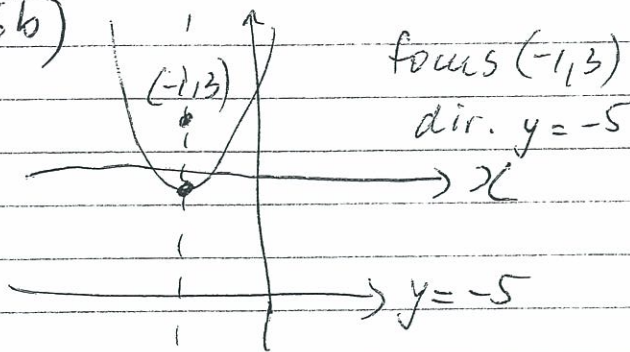 b)
(-1,3)
focus (-1,3)
dir. y = -5
x
y = -5